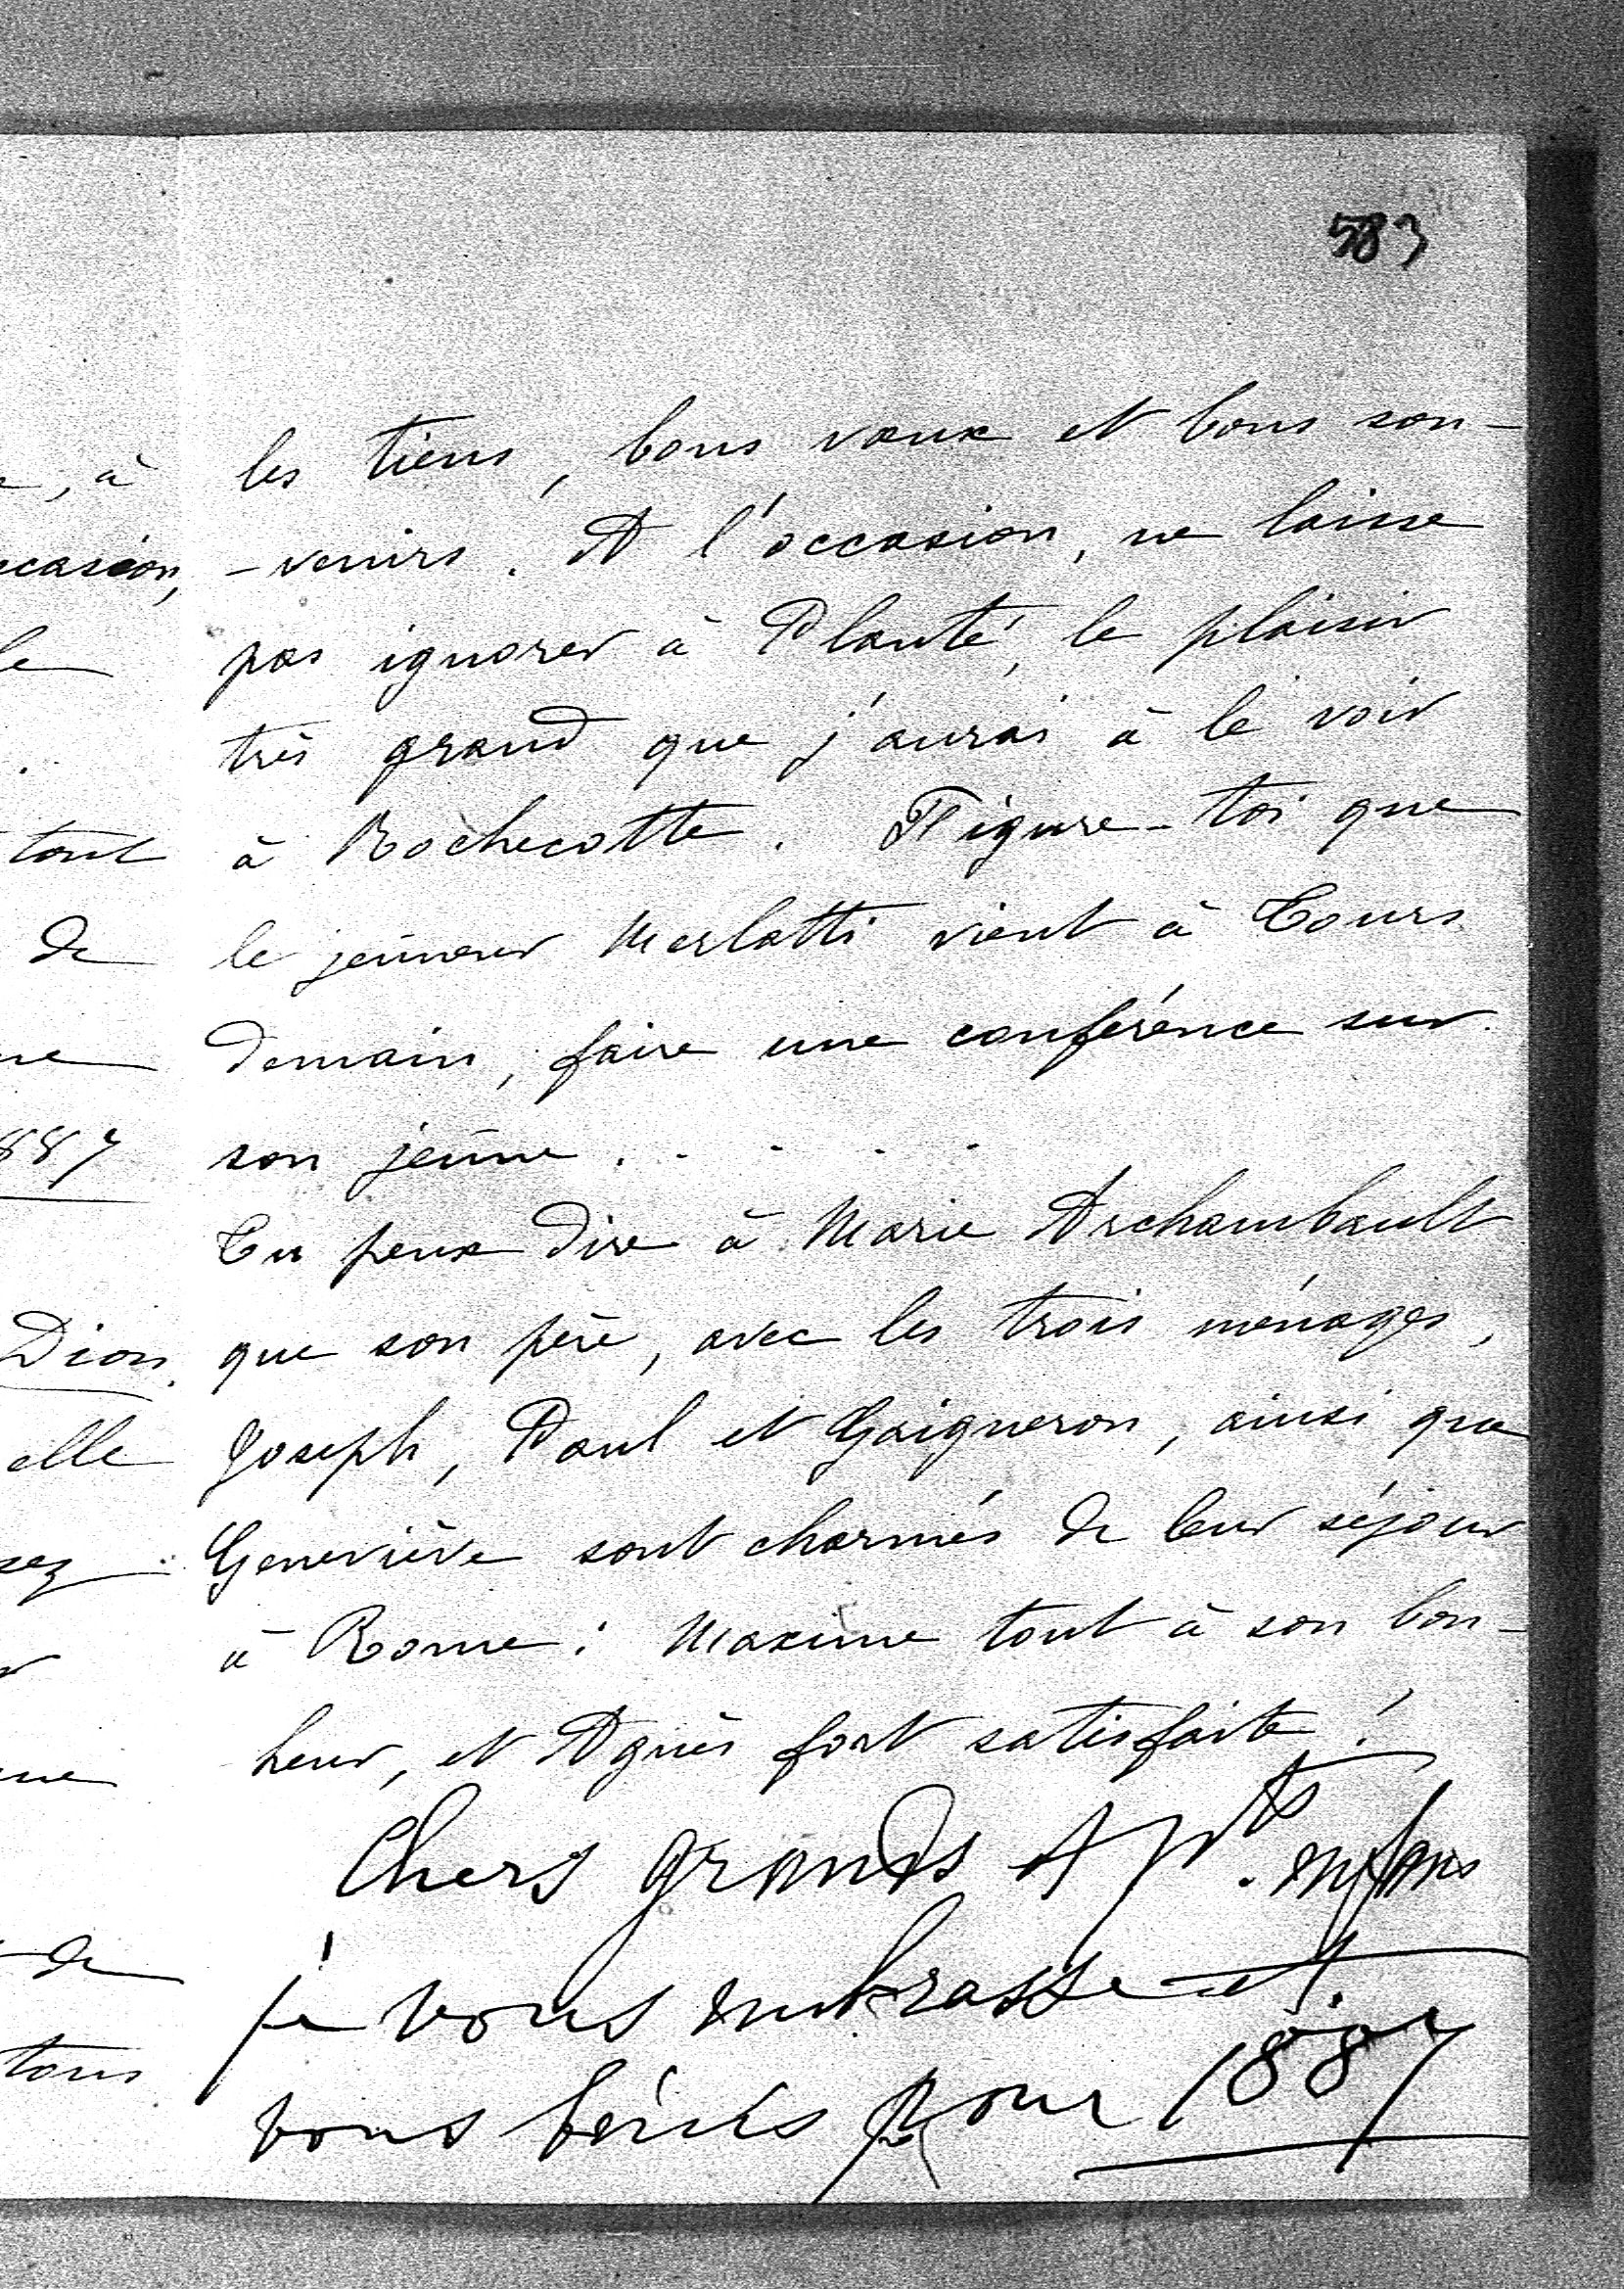 583
les tiens, bons vœux et bons sou-
-venirs. A l'occasion, ne laisse
pas ignorer à Planté, le plaisir
très grand que j'aurai à le voir
à Rochecotte. Figure-toi que
le jeûneur Merlatti vient à Tours
demain, faire une conférence sur
son jeûne . . . . .
Tu peux dire à Marie Archambault
que son père, avec les trois ménages,
Joseph, Paul et Gaigneron, ainsi que
Geneviève sont charmés de leur séjour
à Rome : Maxime tout à son bon-
heur, et Agnès fort satisfaite !
Chers grands et pts. enfans
je vous embrasse et
vous bénis pour 1887
, à
ccasion,
le
.
tout
de
ne
887
Dion.
elle
sez
de
tous